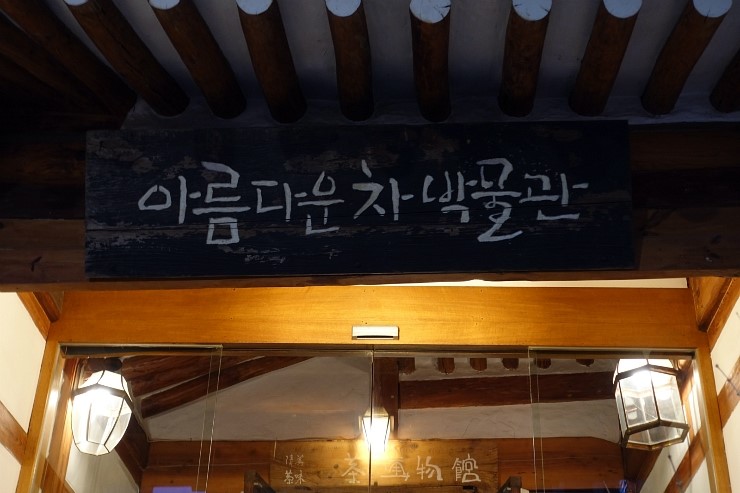 아름다운차박물관
茶博物館